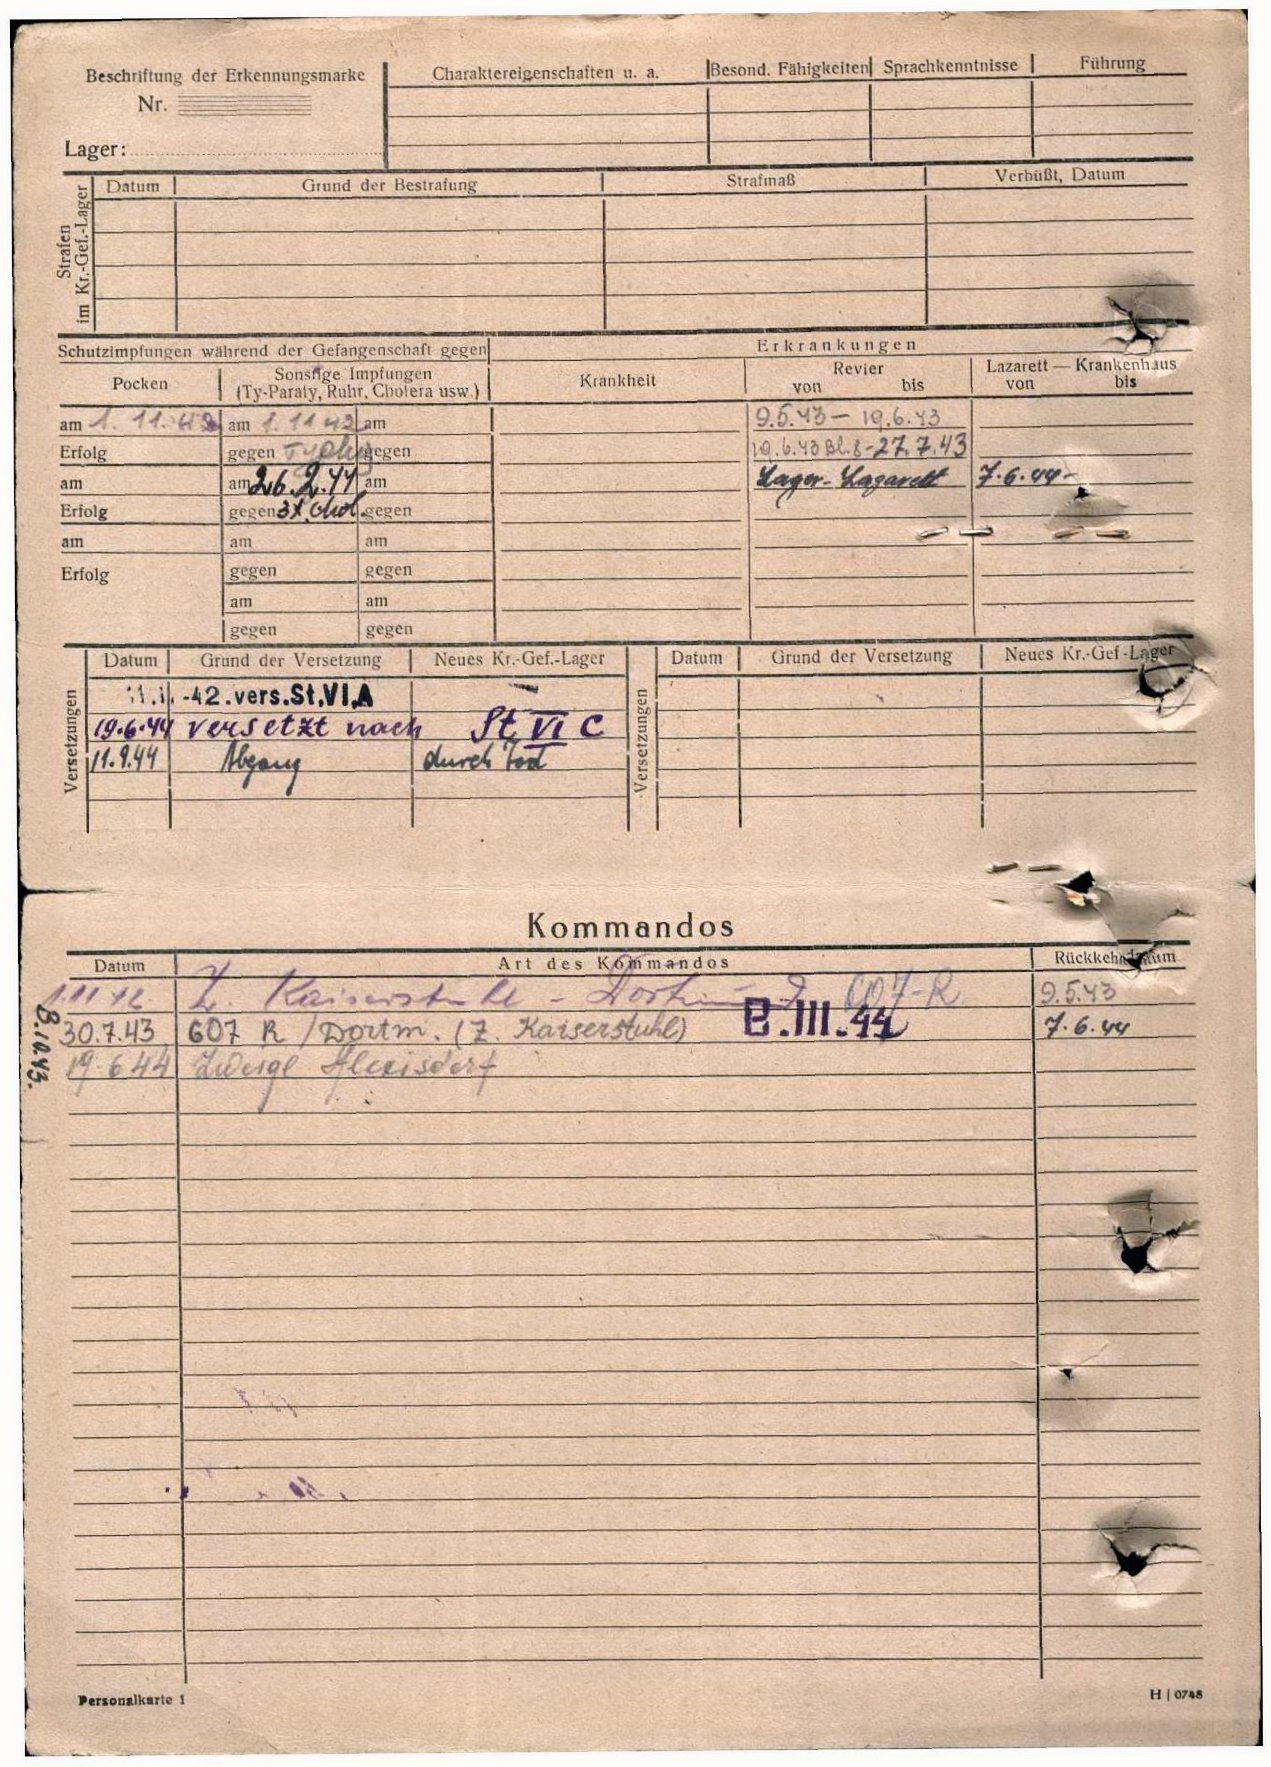 Beschriftung der Erkennungsmarke
Nr.
Lager:
Charaktereigenschaften u. a. Besond. Fähigkeiten Sprachkenntnisse Führung
Strafen im Kr.-Gef.-Lager
Datum Grund der Bestrafung Strafmaß Verbüßt, Datum
Schutzimpfungen während der Gefangenschaft gegen
Erkrankungen
Pocken
Sonstige Impfungen
(Ty-Paraty, Ruhr, Cholera usw.)
Krankheit
Revier
von bis
Lazarett — Krankenhaus
von bis
am 1. 11. 42 am 1. 11 42 am 9.5.43 — 19.6.43
Erfolg gegen gegen 19.6.43 Bl. 8 - 27.7.43
am am 26.2.44 am Lager-Lazarett 7.6.44-
Erfolg gegen 3x Chol. gegen
am am am
Erfolg gegen gegen
am am
gegen gegen
Versetzungen
Datum Grund der Versetzung Neues Kr.-Gef.-Lager
-42.vers.St.VI.A
19.6.44 versetzt nach St VI C
11.9.44 Abgang durch Tod
Versetzungen
Datum Grund der Versetzung Neues Kr.-Gef-Lager
Kommandos
Datum Art des Kommandos Rückkehrdatum
1.11 42 Z. Kaiserstuhl - Dortmund 607-R 9.5.43
30.7.43 607 R /Dortm. (Z. Kaiserstuhl) B.III.44 7.6.44
8.10.43.
19.6 44 Zweigl Alexisdorf
Personalkarte 1
H | 0748